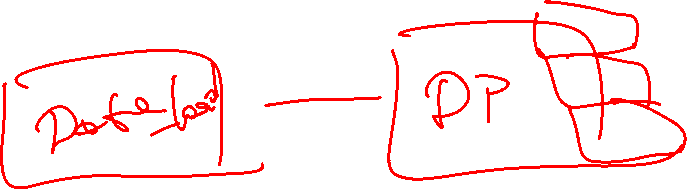 Database
DP